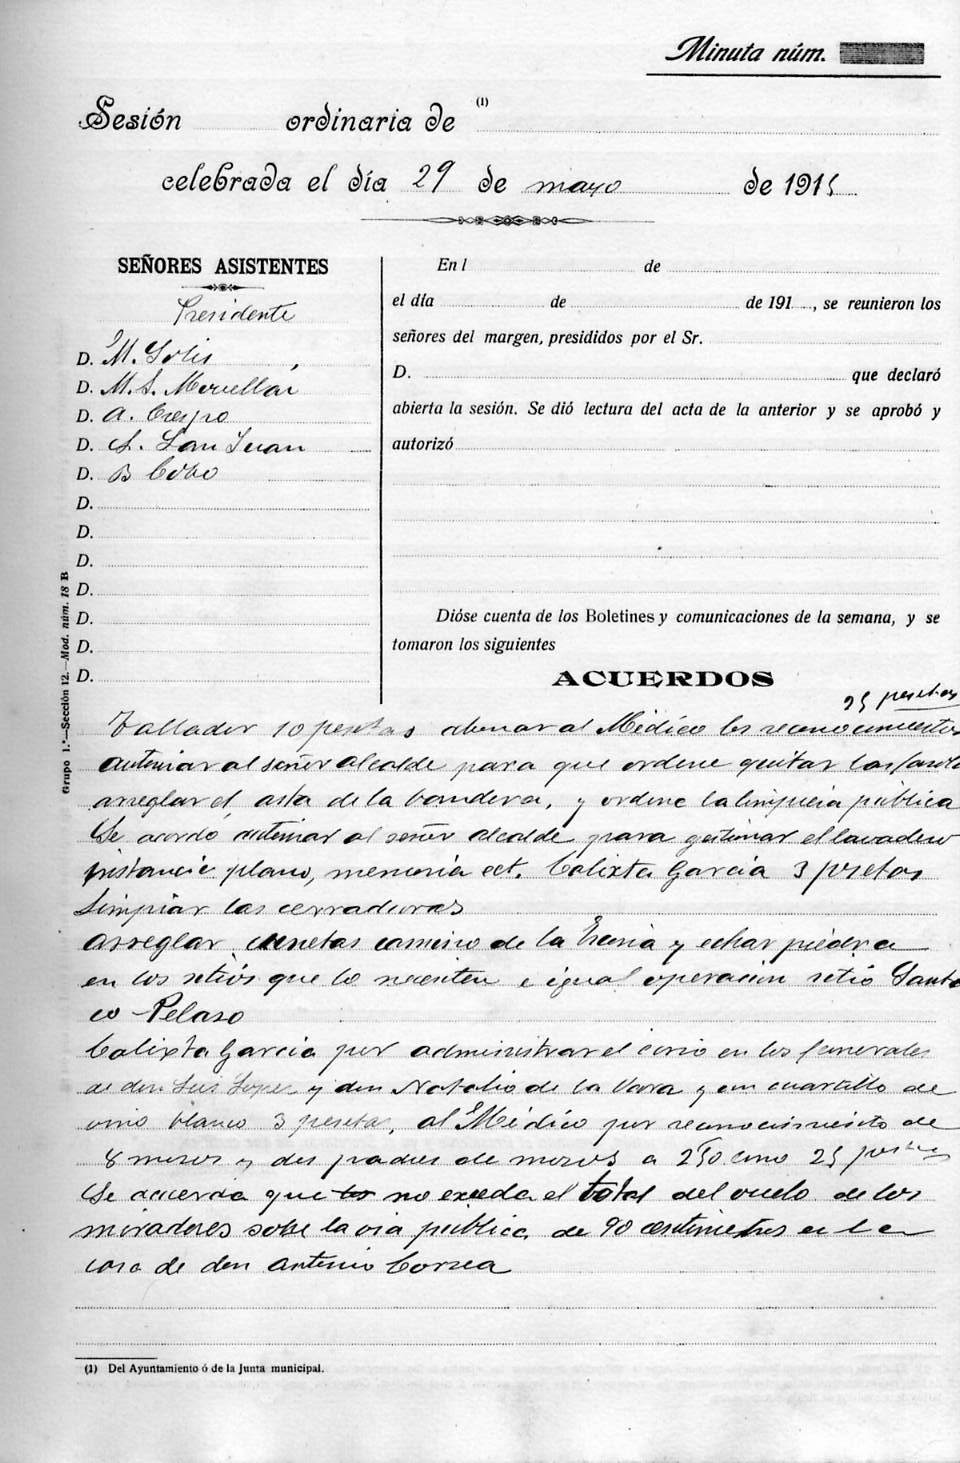 Minuta núm.
Sesión ordinaria de (1)
celebrada el día 29 de mayo de 1915
SEÑORES ASISTENTES
Presidente
D. M. Solis
D. M. S. Mervellar
D. A. Crespo
D. A. San Juan
D. B Cobo
D.
D.
D.
D.
D.
D.
D.
Grupo 1.º—Sección 12.—Mod. núm. 18 B
En l de
el día de de 191 , se reunieron los
señores del margen, presididos por el Sr.
D. que declaró
abierta la sesión. Se dió lectura del acta de la anterior y se aprobó y
autorizó
Dióse cuenta de los Boletines y comunicaciones de la semana, y se
tomaron los siguientes
ACUERDOS
25 pesetas
Tallador 10 pesetas abonar al Médico los reconocimientos
autorizar al señor alcalde para que ordene quitar los
arreglar el asta de la bandera, y ordene la limpieza pública
Se acordó autorizar al señor alcalde para gestionar el lavadero
instancie plano, memoria ect. Calixta Garcia 3 pesetas
Limpiar las cerraduras
arreglar cunetas camino de la y echar piedra
en los sitios que lo necesiten e igual operación sitio
co Pelaso
Calixta Garcia por administrar el en los funerales
de don Luis Lopez y don Natalio de la Vara y un cuartillo de
vino blanco 3 pesetas, al Médico por reconocimiento de
8 mozos y dos padres de mozos a 2'50 25 pesetas
Se acuerda que no exceda el total del vuelo de los
miradores sobre la via pública de 90 centimetros en la
casa de don Antonio Correa
(1) Del Ayuntamiento ó de la Junta municipal.